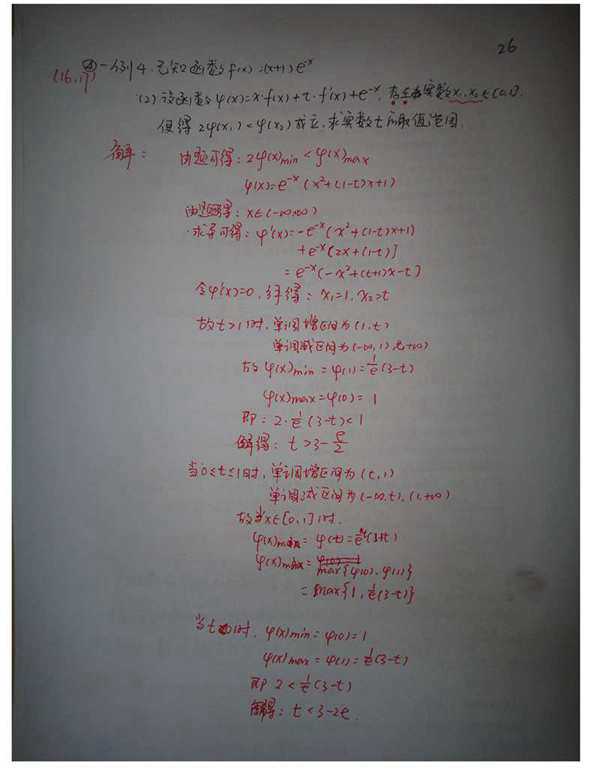 26
(16.17) ④一例4.已知函数f(x)=(x+1)e^-x
(2)设函数φ(x)=x·f(x)+t·f'(x)+e^-x,存在实数x₁,x₂∈[0,1].
使得2φ(x₁)<φ(x₂)成立.求实数t的取值范围.
解: 由题可得:2φ(x)min<φ(x)max
φ(x)=e^-x(x²+(1-t)x+1)
由题得:x∈(-∞,+∞)
求导可得:φ'(x)=-e^-x(x²+(1-t)x+1)
+e^-x[2x+(1-t)]
=e^-x(-x²+(t+1)x-t]
令φ'(x)=0.解得:x₁=1,x₂=t
故t>1时.单调增区间为(1,t)
单调减区间为(-∞,1),(t,+∞)
故φ(x)min=φ(1)=1/e(3-t)
φ(x)max=φ(0)=1
即:2·1/e(3-t)<1
解得:t>3-e/2
当0<t≤1时,单调增区间为(t,1)
单调减区间为(-∞,t),(1,+∞)
故当x∈[0,1]时.
φ(t)=
max{φ(0),φ(1)}
=max{1,1/e(3-t)}
当t 时,φ(x)min=φ(0)=1
φ(x)max=φ(1)=1/e(3-t)
即2<1/e(3-t)
解得:t<3-2e.